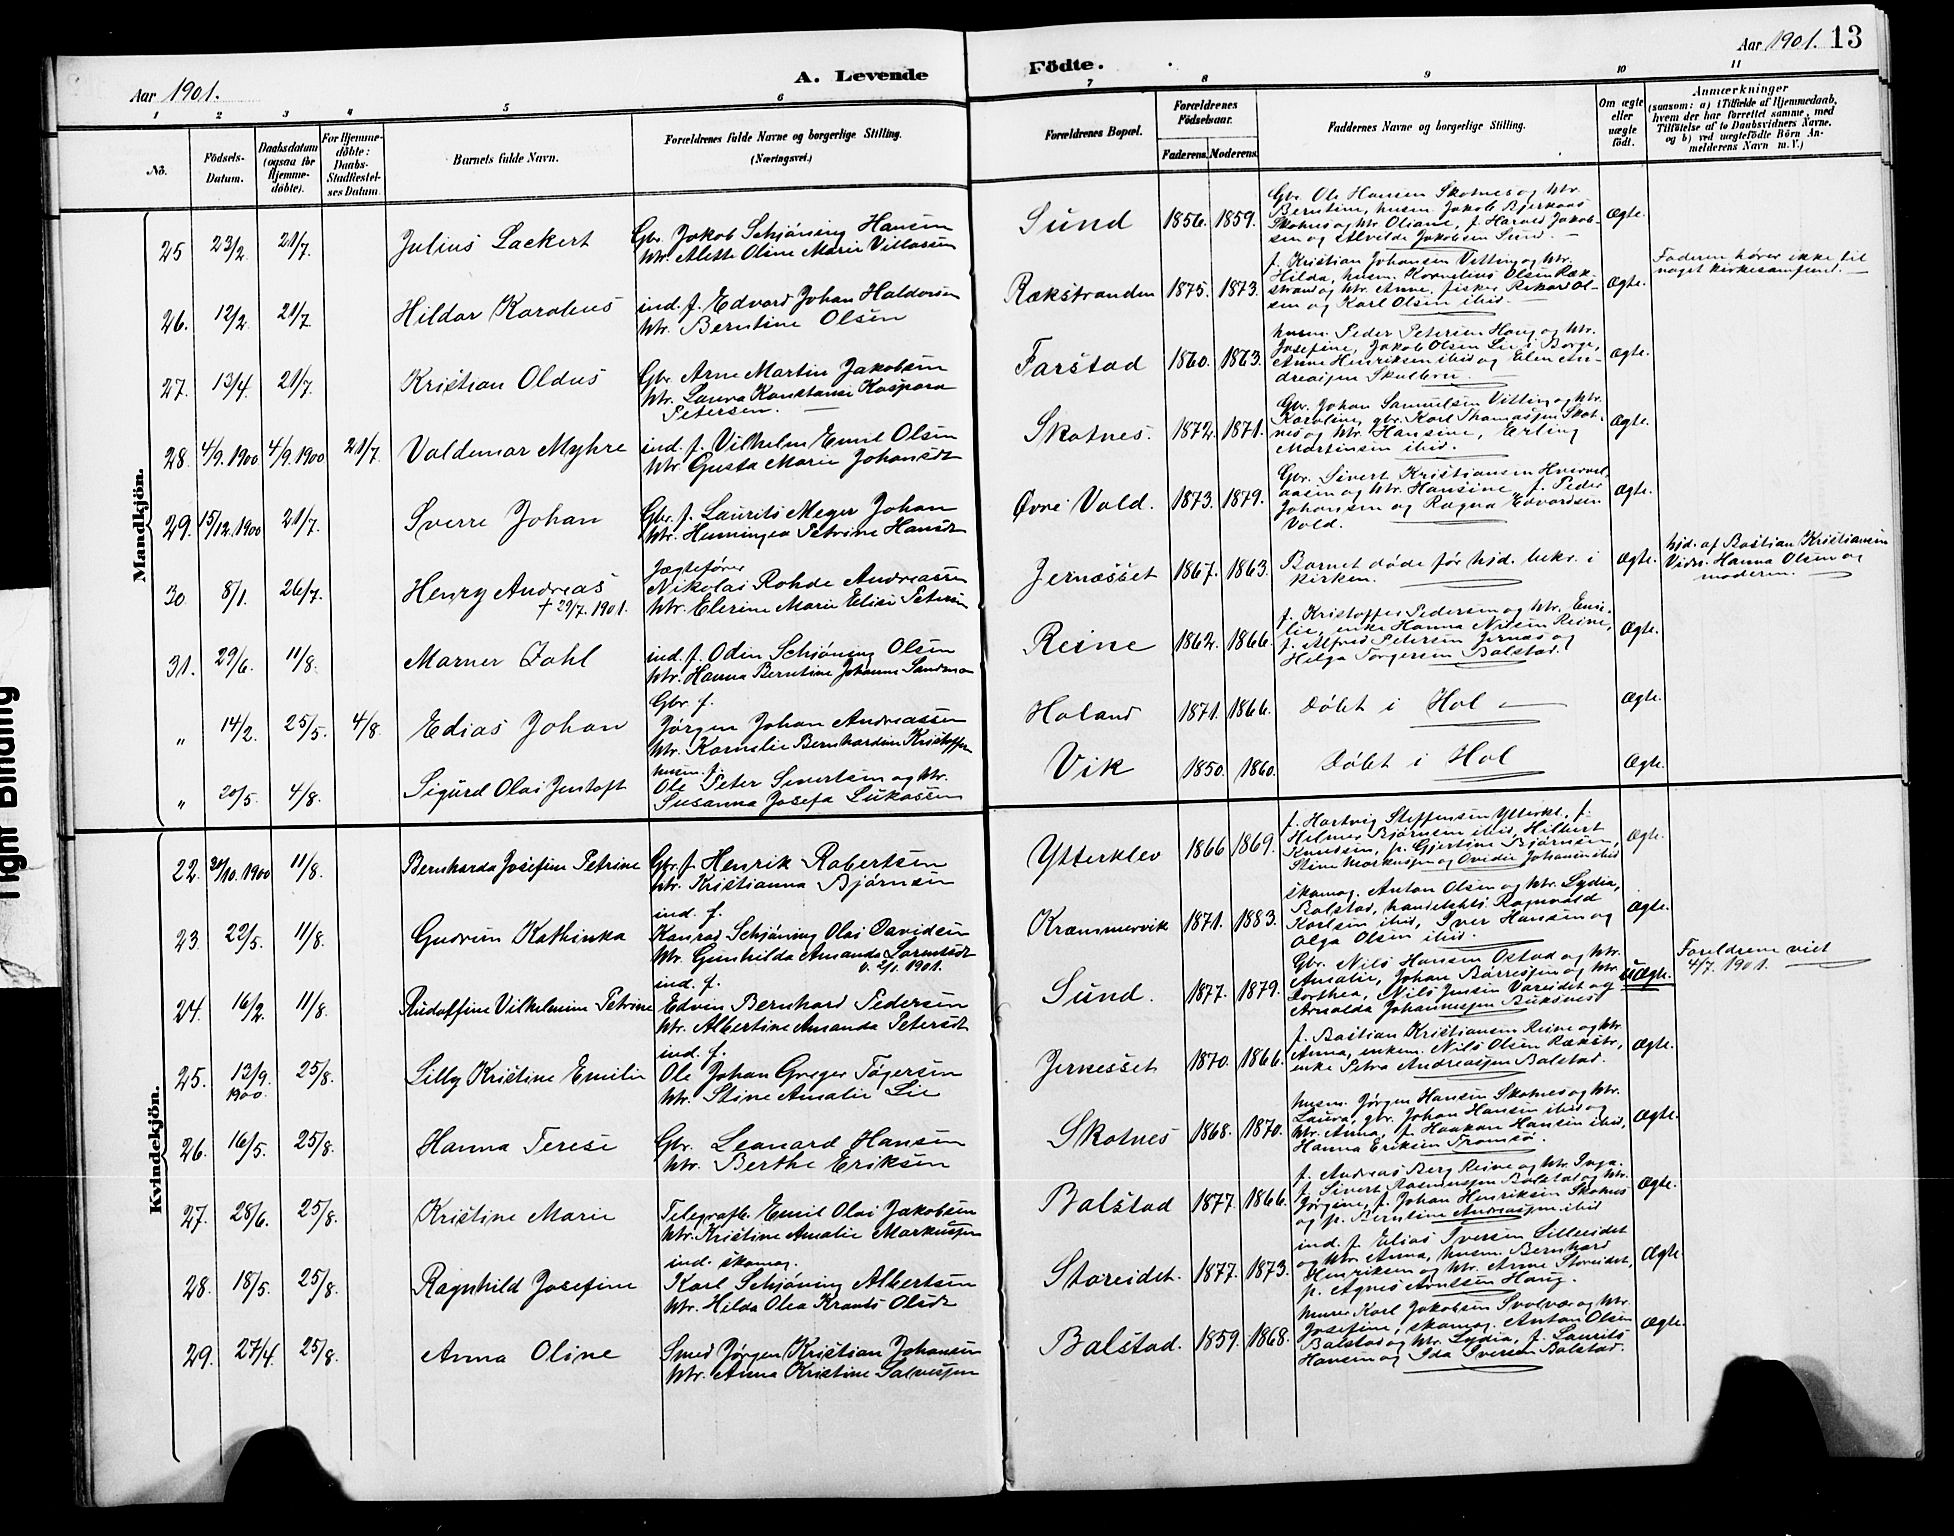 Aar 1901.
A. Levende
Födte.
Aar 1901. 13
1 2 3 4 5 6 7 8 9 10 11
No.
Födsels-Datum.
Daabsdatum (ogsaa for Hjemme-döbte).
For Hjemme-döbte: Daabs-Stadfestel-ses Datum.
Barnets fulde Navn.
Forældrenes fulde Navne og borgerlige Stilling. (Næringsvei.)
Forældrenes Bopæl.
Forældrenes Födselsaar.
Faderens. Moderens.
Faddernes Navne og borgerlige Stilling.
Om ægte eller uægte födt.
Anmærkninger
(saasom: a) i Tilfælde af Hjemmedaab, hvem der har forrettet samme, med Tilföielse af to Daabsvidners Navne, og b) ved uægtefödte Börn Anmelderens Navn m. V.)
Mandkjön.
25 23/2 21/7. Julius Lackert
Gbr. Jakob Schjöning Hansen
htr. Alette Oline Marie Villassen
Sund 1856. 1859.
Gbr. Ole Hansen Skotnes og htr.
Berntine, husm. Jakob Bjerkaas
Skotnes og htr Oliane, f. Harald Jakob-
sen og Alvilde Jakobsen Sund.
Ægte.
26. 12/2. 21/7. Hildor Karolius
ind. f. Edvard Johan Haldorsen
htr. Berntine Olsen
Rækstranden 1875. 1873.
f. Kristian Johansen Vitting og htr.
Hilda, husm. Kornelius Olsen Ræk-
strand og htr. Anne, fisker Rikard Ol-
sen og Karl Olsen ibid.
Ægte.
Faderen hører ikke til
noget kirkesamfund.
27. 13/4. 21/7. Kristian Oldus
Gbr. Arne Martin Jakobsen
htr. Laura Konstanse Kaspara
Petersen.
Farstad 1860. 1863.
husm. Peder Petersen Haug og htr.
Josefine, Jakob Olsen Lie i Borge,
Anne Henriksen ibid og Elen An-
dreassen Skulbru.
Ægte.
28. 4/9. 1900 4/9. 1900 21/7. Valdemar Myhre
ind. f. Vilhelm Emil Olsen
htr Gusta Marie Johansdt
Skotnes. 1872. 1871.
Gbr. Johan Samuelsen Vitting og htr.
Karoline, gbr. Karl Thomassen Skot-
nes og htr. Hansine, Erling
Martinsen ibid.
Ægte.
29. 15/12. 1900 21/7. Sverre Johan
Gbr. f. Laurits Meyer Johan
htr. Henningea Petrine Hansdt
Øvre Vold. 1873. 1879.
Gbr. Sivert Kristiansen
og htr. Hansine, f. Peder
Johansen og Ragna Edvardsen
Vold.
Ægte.
30. 8/1. 26/7. Henry Andreas
† 29/7. 1901.
Jægtefører
Nikolai Rohde Andreassen
htr. Elerine Marie Elise Petersen
Jernæsset 1867. 1863.
Barnet døde før hjd. bekr. i
kirken.
Ægte.
hjd. af Bastian Kristiansen
Vidn. Hanna Olsen og
moderen.
31. 29/6. 11/8. Marner Zahl
ind. f. Odin Schjöning Olsen
htr. Hanna Berntine Johanne
Reine 1862. 1866.
f. Kristoffer Pedersen og htr. Emi-
lie, enke Hanna Nilsen Reine,
f. Alfred Petersen Jernæs og
Helga Torgersen Balstad.
Ægte.
" 14/2. 25/5. 4/8. Edias Johan
Gbr. f.
Jørgen Johan Andreassen
htr. Kornelie Bernhardine Kristoffersen
Holand 1871. 1866. Døbt i Hol Ægte.
" 20/5. 4/8. Sigurd Olai Justoft
husm. f.
Ole Peter Sivertsen og htr.
Susanna Josefa Lukassen
Vik 1850. 1860. Døbt i Hol Ægte.
Kvindekjön.
22. 30/10. 1900 11/8. Bernharda Josefine Petrine
Gbr. f. Henrik Robertsen
htr. Kristianna Bjørnsen
Ytterklev 1866 1869.
f. Hartvig Steffensen Ytterkl., f.
Hilmer Bjørnsen ibid, Hilbert
Knudsen, p. Gjertine Bjørnsen,
Stine Markussen og Ovidie Johansen ibid
Ægte.
23. 29/5. 11/8. Gudrun Kathinka
ind. f.
Konrad Schjöning Olai Davidsen
htr. Gunhilda Amanda Lorentsdt
v. 2/1. 1901.
Kræmmervik 1871. 1883.
skomag. Anton Olsen og htr. Lydia,
Balstad, handelsbt. Ragnvald
Karlsen ibid, Iver Hansen og
Olga Olsen ibid.
Ægte.
24. 16/2. 11/8. Rudolfine Vilhelmine Petrine
ind. f.
Edvin Bernhard Pedersen
htr. Albertine Amanda Petersdt
Sund. 1877. 1879.
Gbr. Nils Hansen Ostad og htr.
Amalie, Johan Børressen og htr
Dorthea, Nils Jensen Vareidet og
Arnolda Johannessen Buksnes
uægte.
Foreldrene viet
4/7. 1901.
25. 13/9. 1900. 25/8. Lilly Kristine Emilie
ind. f.
Ole Johan Greger Tøgersen
htr. Stine Amalie Lie
Jernesset 1870. 1866.
f. Bastian Kristiansen Reine og htr
Anna, enkem. Nils Olsen Rækstr.,
enke Petra Andreassen Balstad.
Ægte.
26. 16/5. 25/8. Hanna Terese
Gbr. Leonard Hansen
htr. Berthe Eriksen
Skotnes 1868. 1870.
husm. Jørgen Hansen Skotnes og htr.
Laura, gbr. Johan Hansen ibid og
htr. Anna, f. Haakon Hansen ibid,
Hanna Eriksen Tromsø.
Ægte.
27. 28/6. 25/8. Kristine Marie
Telegrafb. Emil Olai Jakobsen
htr. Kristine Amalie Markussen
Balstad 1877. 1866.
f. Andreas Berg Reine og htr Inga.
f. Sivert Rasmussen Balstad og htr.
Jørgine, f. Johan Henriksen Skotnes
og p. Berntine Andreassen ibid
Ægte.
28. 18/5. 25/8. Ragnhild Josefine
ind. skomag.
Karl Schjöning Albertsen
htr. Hilda Olea Krants Olsdt
Storeidet. 1877. 1873.
ind. f. Elias Iversen Lilleeidet
og htr Anna, husm. Bernhard
Henriksen og htr. Anne Storeidet,
p. Agnes Arntsen Haug.
Ægte.
29. 27/4. 25/8. Anna Oline
Smed Jørgen Kristian Johansen
htr. Anna Kristine Salvessen
Balstad. 1859. 1868.
murer Karl Jakobsen Svolvær og htr.
Josefine, skomag. Anton Olsen
Balstad og htr. Lydia, f. Laurits
Hansen og Ida Iversen Balstad.
Ægte.
Tight Binding